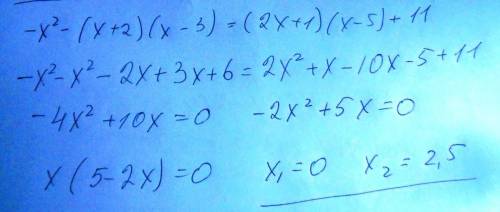 -x² - (x+2)(x-3) = (2x+1)(x-5)+11
-x² - x² - 2x + 3x + 6 = 2x² + x - 10x - 5 + 11
-4x² + 10x = 0 -2x² + 5x = 0
x(5-2x) = 0 x₁ = 0 x₂ = 2,5